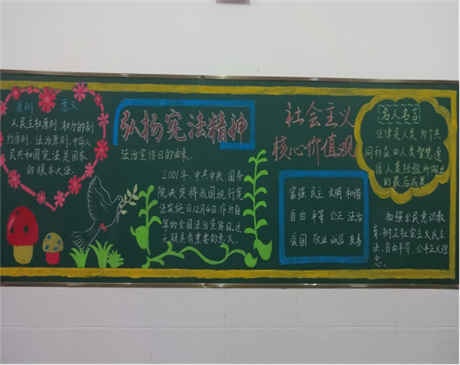 原则 意义
人民主权原则、权力的制
约原则、法治原则、中华人
民共和国宪法是国家
的根本大法。
弘扬宪法精神
法治宣传日的由来、
2001年、中共中央、国务
院决定将我国现行宪
法实施日12月4日、作为每
年的全国法治宣传日、这
天就具有重要的意义。
社会主义
核心价值观
富强 民主 文明 和谐
自由 平等 公正 法治
爱国 敬业 诚信 友善
名人名言
法律是人类为了共
同利益、由人类智慧遵
循人类经验所做出
的最后成果
加强公民意识教
育、树立社会主义民主
法、自由平等、公平正义理
念。